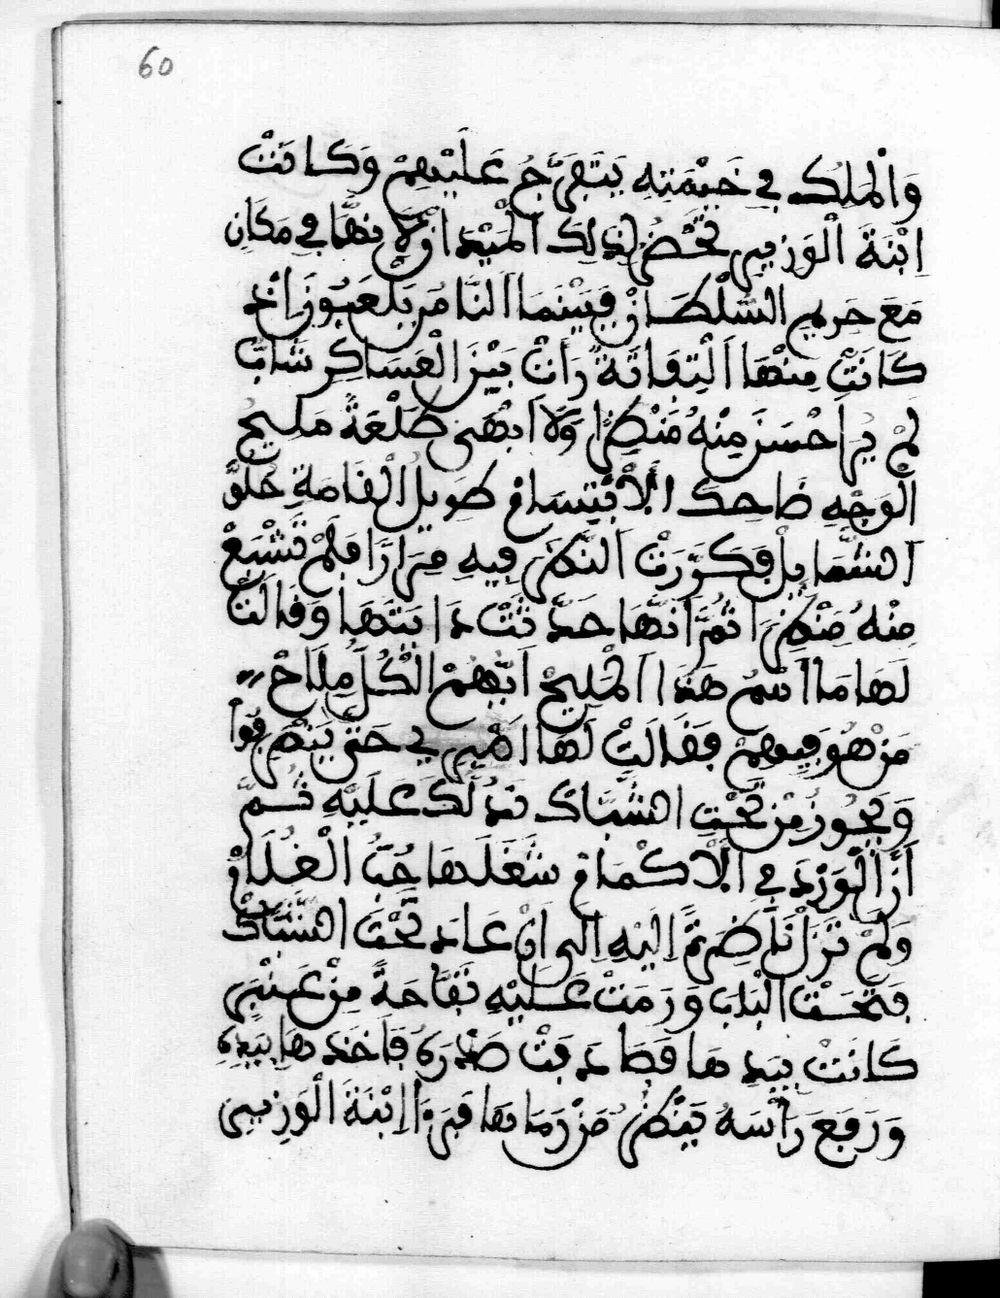 60
وَالْمَلِكُ فِي خَيْمَتِهِ يَتَفَرَّجُ عَلَيْهِمْ وَكَانَتْ
اِبْنَةَ الْوَزِيرِ تَحْضُرُ لِذَلِكَ الْمَيْدَانْ لِاَنَّهَا فِي مَكَانٍ
مَعَ حَرِيمِ السُّلْطَانْ فَبَيْنَمَا النَّاسُ يَلْعَبُونَ اِذْ
كَانَتْ مِنْهَا اَلْتِفَاتَةً رَأَتْ بَيْنَ الْعَسَاكِرِ شَابٌّ
لَمْ يُرَ اَحْسَنَ مِنْهُ مَنْظَرًا وَلَا اَبْهَى طَلْعَةً مَلِيحُ
الْوَجْهِ ضَاحِكَ الْاَبْتِسَامْ طَوِيلُ الْقَامَةِ حُلْوُ
الشَّمَايِلْ فَكَرَّرَتْ النَّظَرَ فِيهِ مِرَارًا فَلَمْ تَشْبَعْ
مِنْهُ مَنْظَرًا ثُمَّ اَنَّهَا حَدَّثَتْ دَايَتَهَا وَقَالَتْ
لَهَا مَا اَسْمُ هَذَا الْمَلِيحْ اَيُّهُمْ الْكُلّ مِلَاحْ
مَنْ هُوَ فِيهِمْ فَقَالَتْ لَهَا اِصْبِرِي حَتَّى يَتَفَرَّقُوا
وَيَجُوزُ مِنْ تَحْتِ الشُّبَّاكْ نَدُلَّكَ عَلَيْهِ ثُمَّ
اَنَّ الْوَرْدَ فِي الْاَكْمَامْ شَغَلَهَا حُبُّ الْغُلَامْ
وَلَمْ تَزَلْ نَاضِرَةً اِلَيْهِ اِلَى اَنْ عَادَ تَحْتَ الشُّبَّاكْ
فَفَتَحَتْ الْبَابَ وَرَمَتْ عَلَيْهِ تُفَّاحَةً مِنْ عَنْبَرٍ
كَانَتْ بِيَدِهَا فَصَادَفَتْ صَدْرَهُ فَاَخَذَهَا بِيَدِهِ
وَرَفَعَ رَأْسَهُ يَنْظُرُ مَنْ رَمَاهَا فَرَءَا اِبْنَةَ الْوَزِيرِ